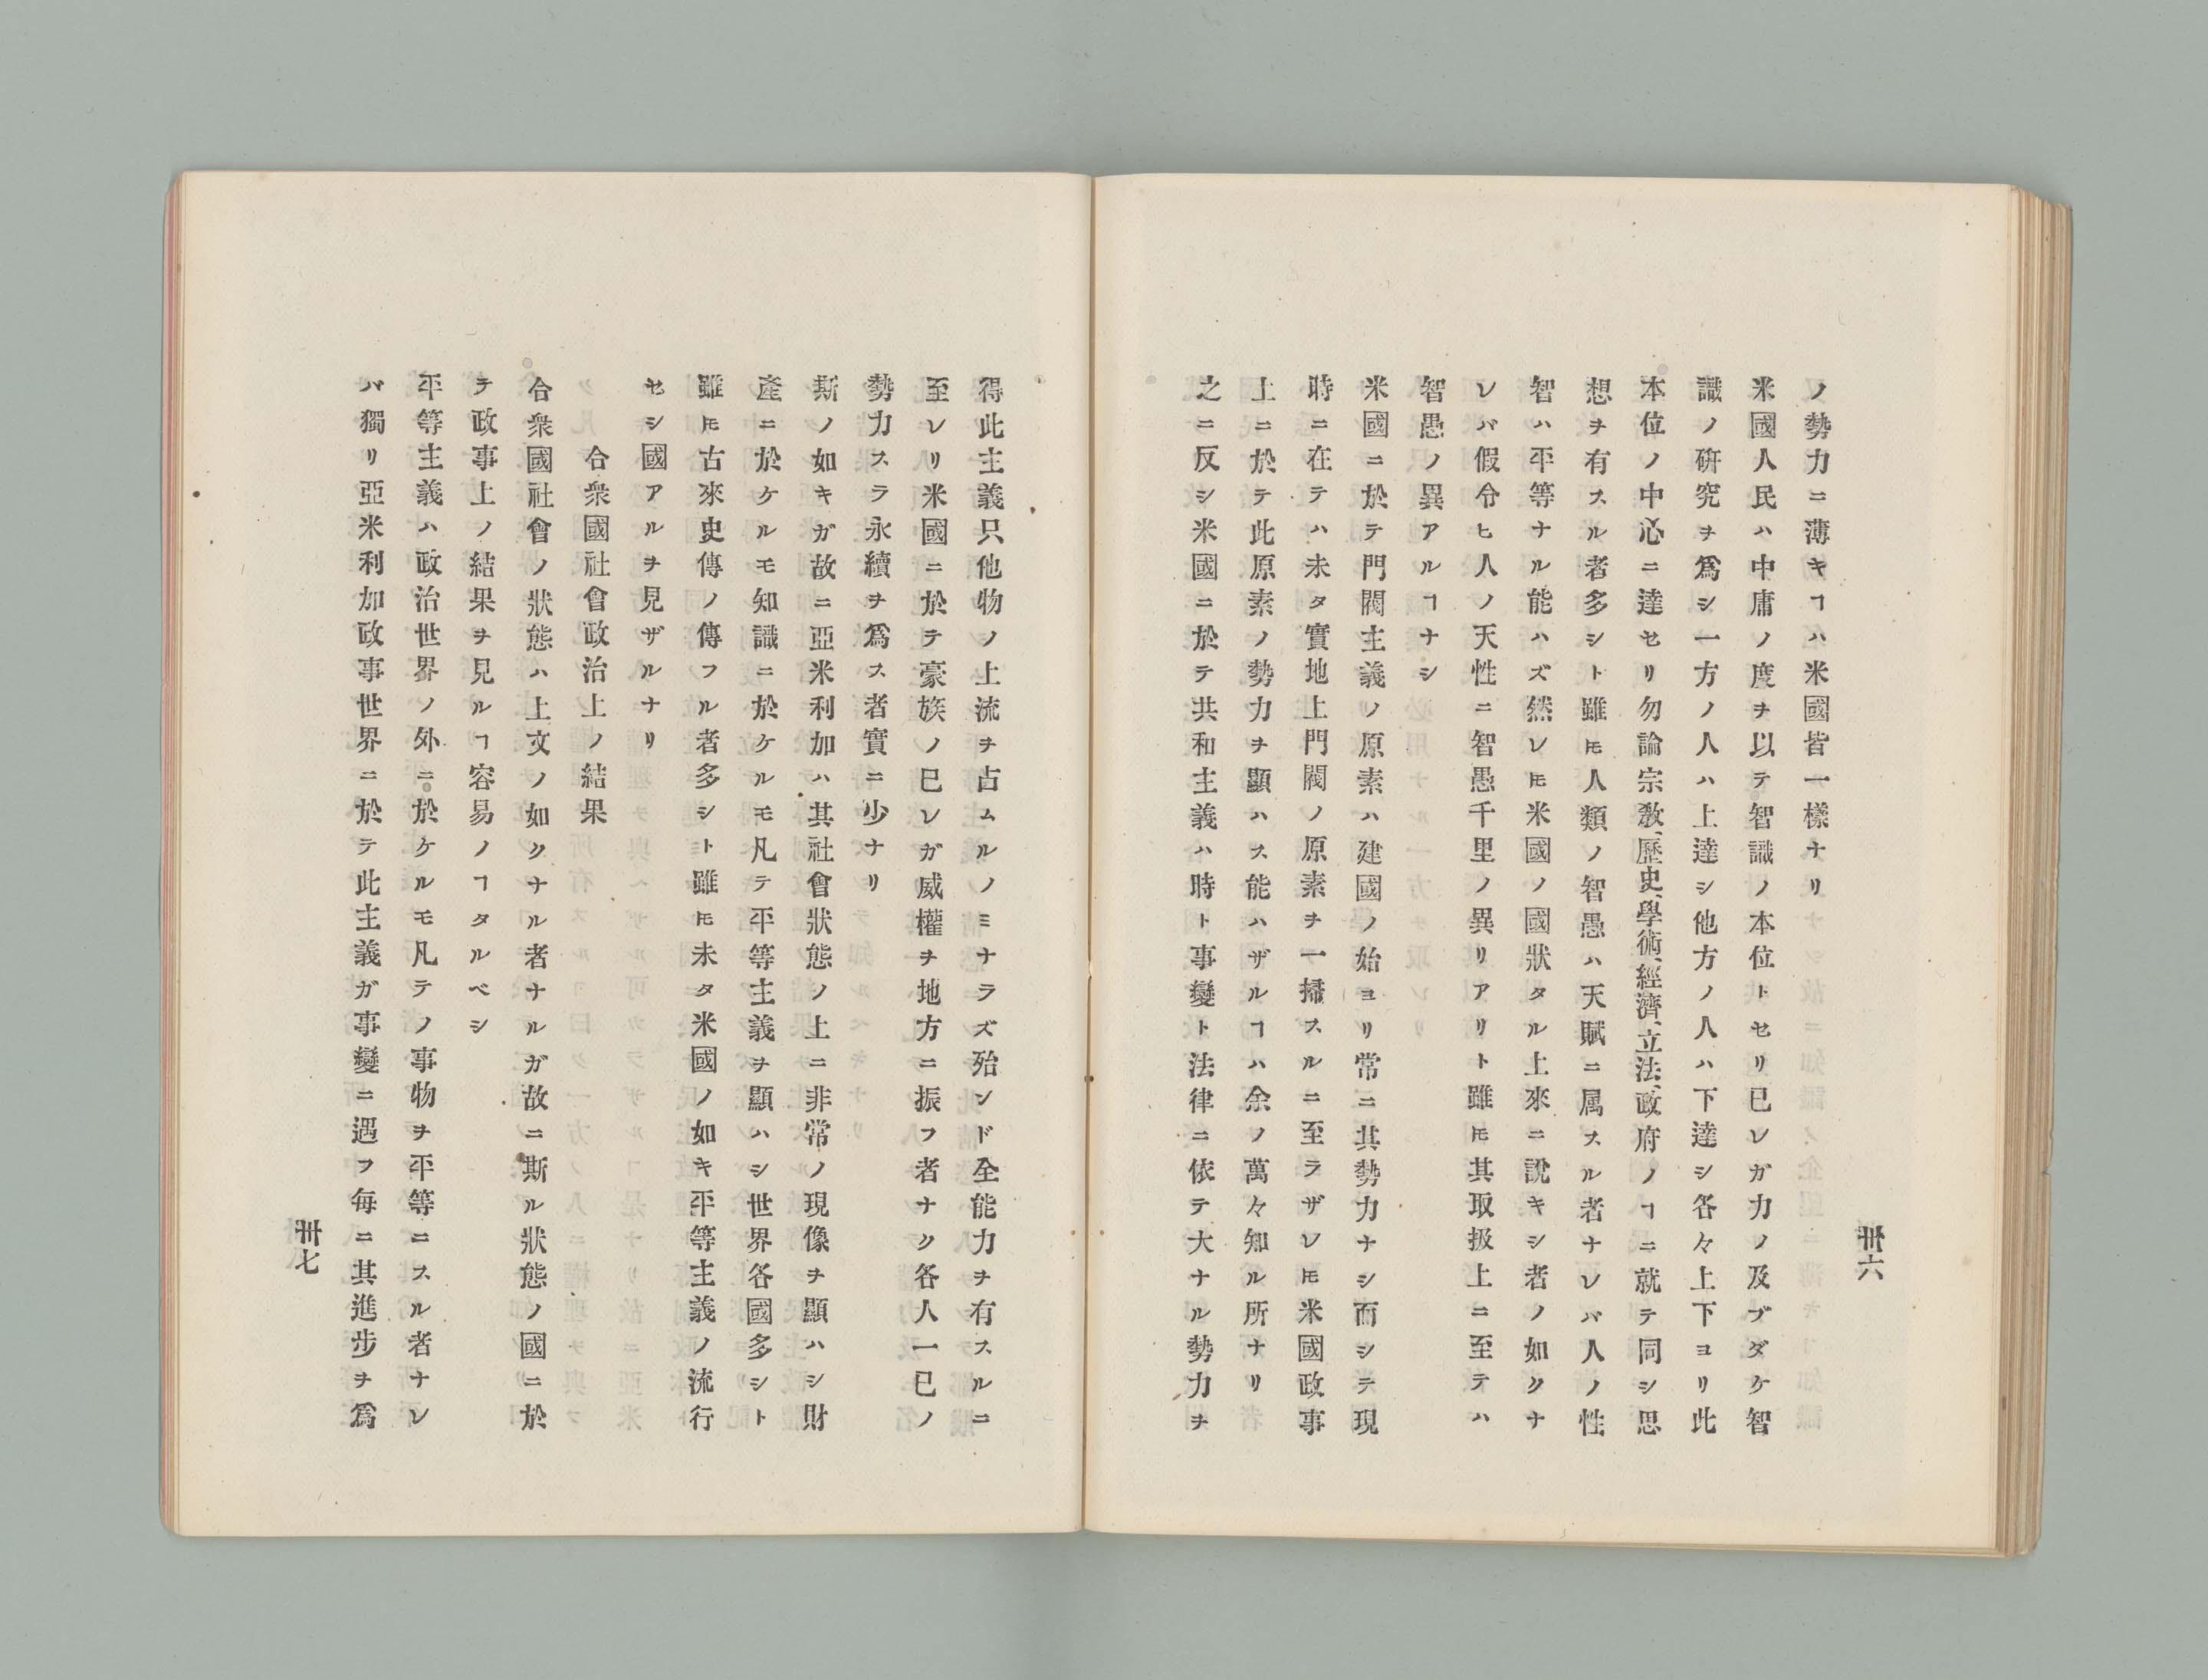 ノ勢力ニ薄キヿハ米國皆一樣ナリ
米國人民ハ中庸ノ度ヲ以テ智識ノ本位トセリ已レガ力ノ及ブダケ智
識ノ硏究ヲ爲シ一方ノ人ハ上達シ他方ノ人ハ下達シ各々上下ヨリ此
本位ノ中心ニ達セリ勿論宗敎、歷史、學術、經濟、立法、政府ノヿニ就テ同シ思
想ヲ有スル者多シト雖モ人類ノ智愚ハ天賦ニ属スル者ナレバ人ノ性
智ハ平等ナル能ハズ然レ𪜈米國ノ國狀タル上來ニ說キシ者ノ如クナ
レバ假令ヒ人ノ天性ニ智愚千里ノ異リアリト雖𪜈其取扱上ニ至テハ
智愚ノ異アルヿナシ
米國ニ於テ門閥主義ノ原素ハ建國ノ始ヨリ常ニ其勢力ナシ而シテ現
時ニ在テハ未タ實地上門閥ノ原素ヲ一掃スルニ至ラザレ𪜈米國政事
上ニ於テ此原素ノ勢力ヲ顯ハス能ハザルヿハ余ノ萬々知ル所ナリ
之ニ反シ米國ニ於テ共和主義ハ時ト事變ト法律ニ依テ大ナル勢力ヲ
卅六
得此主義只他物ノ上流ヲ占ムルノミナラズ殆ンド全能力ヲ有スルニ
至レリ米國ニ於テ豪族ノ已レガ威權ヲ地方ニ振フ者ナク各人一已ノ
勢力スラ永續ヲ爲ス者實ニ少ナリ
斯ノ如キガ故ニ亞米利加ハ其社會狀態ノ上ニ非常ノ現像ヲ顯ハシ財
產ニ於ケルモ知識ニ於ケルモ凡テ平等主義ヲ顯ハシ世界各國多シト
雖𪜈古來史傳ノ傳フル者多シト雖𪜈未タ米國ノ如キ平等主義ノ流行
セシ國アルヲ見ザルナリ
合衆國社會政治上ノ結果
合衆國社會ノ狀態ハ上文ノ如クナル者ナルガ故ニ斯ル狀態ノ國ニ於
テ政事上ノ結果ヲ見ルヿ容易ノヿタルベシ
平等主義ハ政治世界ノ外ニ於ケルモ凡テノ事物ヲ平等ニスル者ナレ
バ獨リ亞米利加政事世界ニ於テ此主義ガ事變ニ遇フ每ニ其進步ヲ爲
卅七